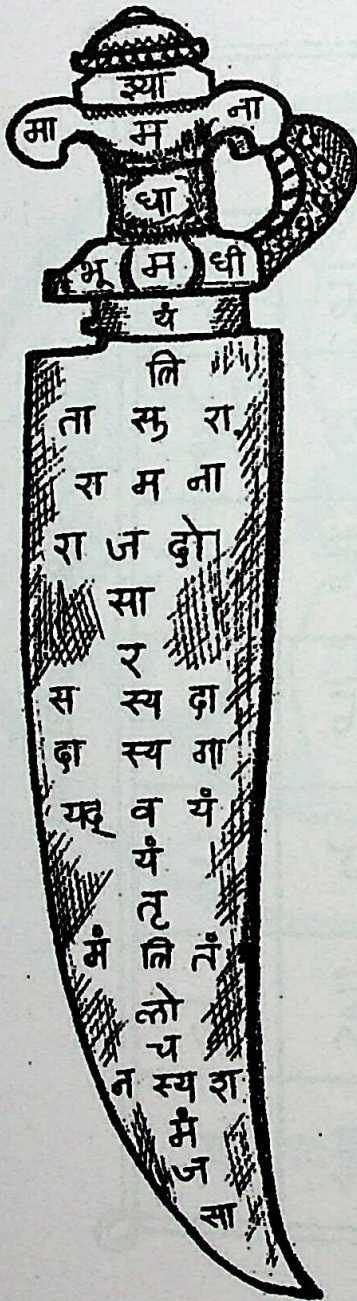 श्या
मा म ना
धा
भू म धी
यं
लि
ता स्त रा
रा म ना
रा ज दो
सा
र
स स्य दा
दा स्य गा
यद् व यं
यं
तृ
मं लि तं
लो
च
न स्य श
मं
ज
सा